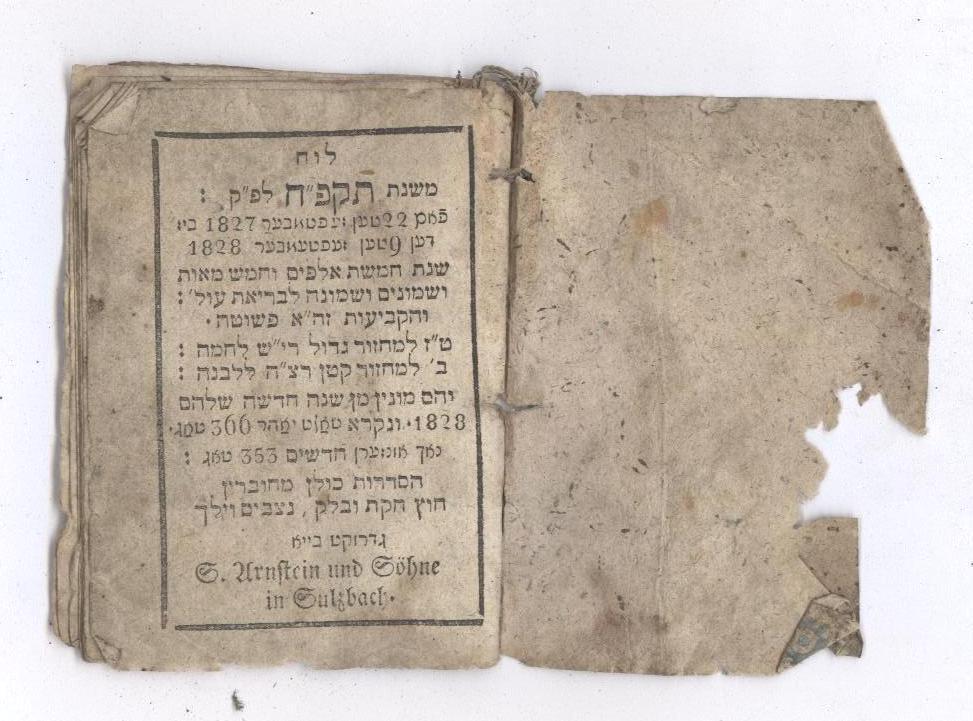 לוח
משנת תקפ״ח לפ״ק :
פֿאָם 22טען זעפטעמבער 1827 ביז
דען 9טען זעפטעמבער 1828
שנת חמשת אלפים וחמש מאות
ושמונים ושמונה לבריאת עול׳ :
והקביעות זה״א פשוטה .
ט״ז למחזור גדול רי״ש לחמה :
ב׳ למחזור קטן רצ״ה ללבנה :
והם מונין מן שנה חדשה שלהם
1828 . ונקרא יאָהר 366 טאג .
נאך אונזערן חדשים 353 טאג :
הסדרות כולן מחוברין
חוץ חקת ובלק , נצבים וילך
גדרוקט בייא
S. Arnstein und Söhne
in Sulzbach.